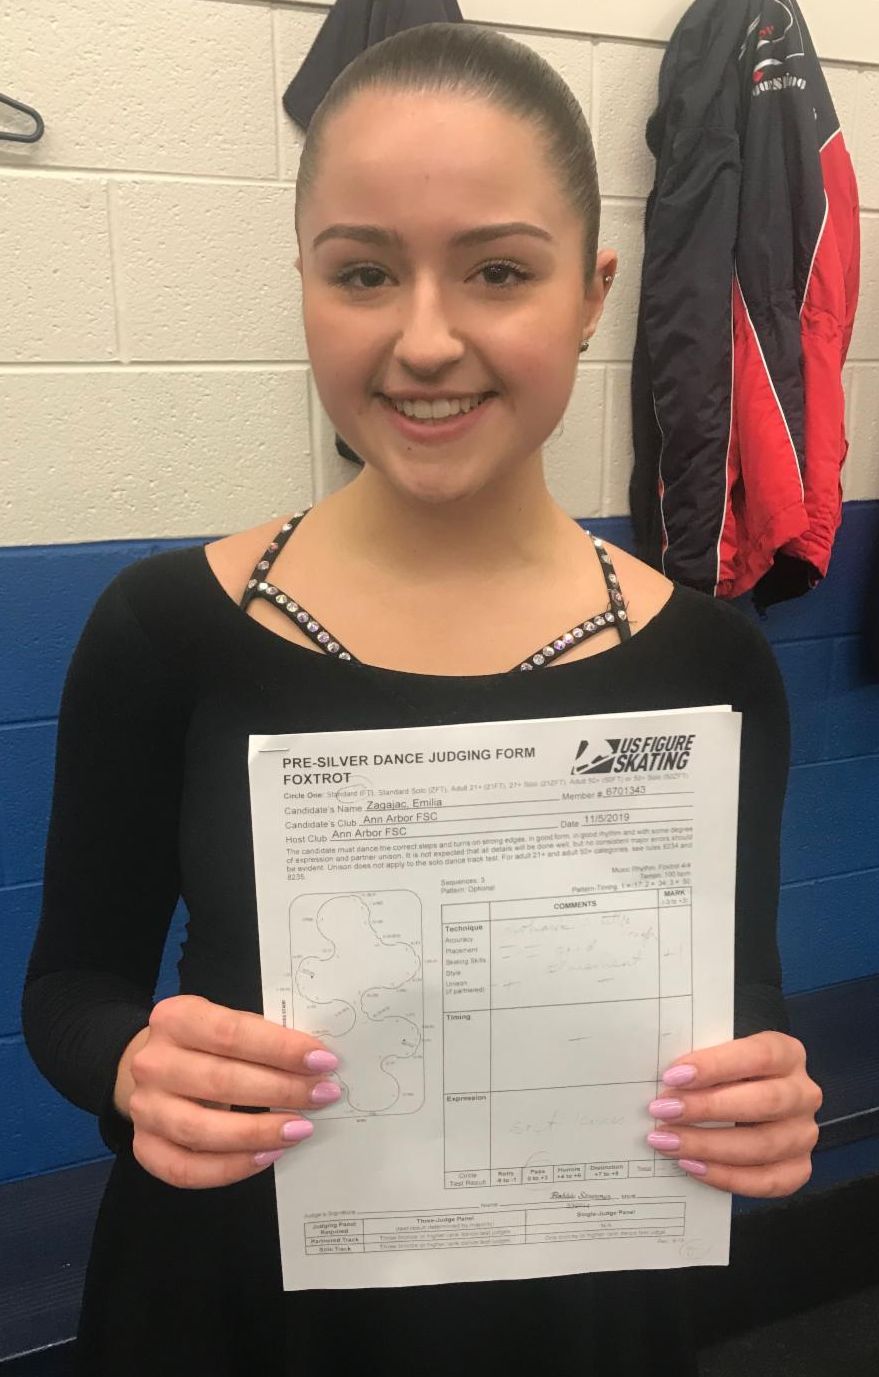 PRE-SILVER DANCE JUDGING FORM
FOXTROT
US FIGURE
SKATING
Circle One: Standard (FT), Standard Solo (ZFT), Adult 21+ (21FT), 21+ Solo (21ZFT), Adult 50+ (50FT) or 50+ Solo (50ZFT)
Candidate's Name Zagajac, Emilia Member # 6701343
Candidate's Club Ann Arbor FSC
Host Club Ann Arbor FSC Date 11/5/2019
The candidate must dance the correct steps and turns on strong edges, in good form, in good rhythm and with some degree
of expression and partner unison. It is not expected that all details will be done well, but no consistent major errors should
be evident. Unison does not apply to the solo dance track test. For adult 21+ and adult 50+ categories, see rules 8234 and
8235.
Sequences: 3
Pattern: Optional
Music Rhythm: Foxtrot 4/4
Tempo: 100 bpm
Pattern Timing
COMMENTS
MARK
(-3 to +3)
Technique
Accuracy
Placement
Skating Skills
Style
Unison
(if partnered)
good
Timing
Expression
Circle
Test Result
Retry
Pass
0 to +3
Honors
+4 to +6
Distinction
+7 to +9
Total
Judge's Signature
Name
Judging Panel
Required
Three-Judge Panel
(test result determined by majority)
Single-Judge Panel
N/A
Partnered Track
Three bronze or higher rank dance test judges
Solo Track
Three bronze or higher rank dance test judges
One bronze or higher rank dance test judge